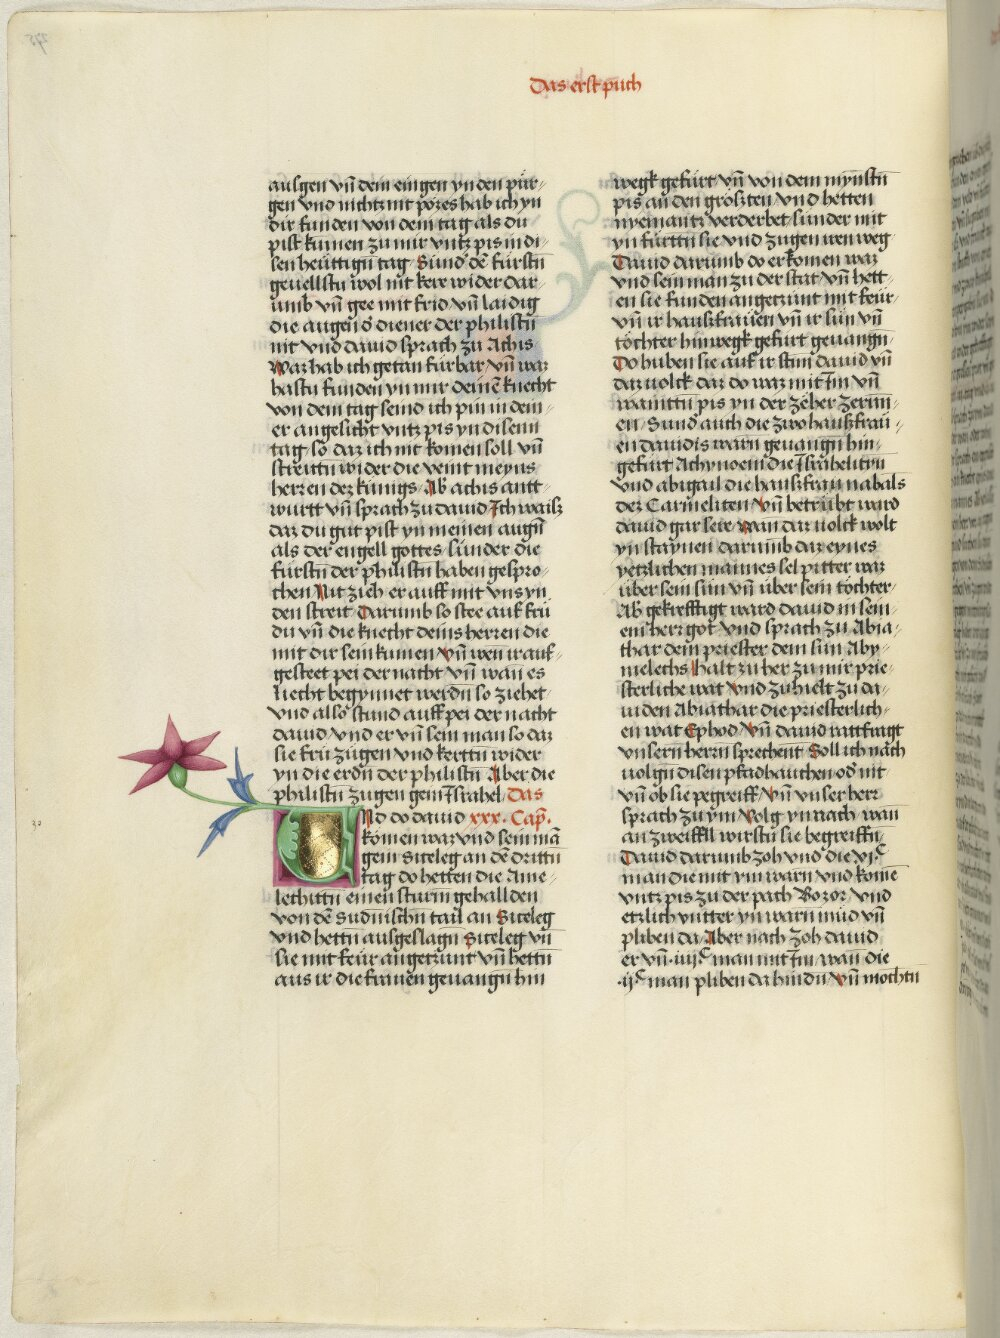 Das erst puch
ausgen vñ dem eingen yn den pür-
gen vnd nichtz nit pözes hab ich yn
dir funden von dem tag als du
pist kumen zu mir vntz pis in di-
sen heüttign tag Sund' dē fürstn
geuellstu wol nit kere wider dar-
umb vñ gee mit frid vñ laidig
die augen d' diener der philistn̄
nit vnd dauid sprach zu Achis
Waz hab ich getan fürbar vñ waz
hastu funden yn mir deinē knecht
von dem tag seind ich pin in dein-
er angesicht vntz pis yn disem
tag so daz ich nit komen soll vñ
streittn wider die veint meyns
herren dez künigs Ab achis antt-
wurtt vñ sprach zu dauid Ich waisz
daz du gut pist yn meinen augn̄
als der engell gottes sünder die
fürstn der philistn haben gespro-
chen Nit zieh er auff mit vns yn
den streit Darumb so stee auf frü
du vñ die knecht deins herren die
mit dir sein kumen vñ wen ir auf-
gesteet pei der nacht vñ wan es
liecht begynnet werdn so ziehet
vnd also stund auff pei der nacht
dauid vnd er vñ sein man so daz
sie frü zügen vnd kerttn wider
yn die erdn der philistn Aber die
philistn zugen gem Israhel Das
Vnd do dauid xxx. Cap.
komen waz vnd sein mā
gein Siceleg an dē drittn
tag do hetten die Ame-
lechittn einen sturm gehallden
von dē Sudnischn tail an Siceleg
vnd hettn ausgeslagn Siceleg vñ
sie mit feür angetzunt vñ hettn
aus ir die frauen geuangn hin
wegk gefürt vñ von dem mynstn̄
pis an den grösten vnd hetten
nyemantz verderbet sünder mit
yn fürttn sie vnd zugen iren weg
Dauid darumb do er komen waz
vnd sein man zu der stat vñ hett-
en sie funden angetzunt mit feür
vñ ir hauszfrauen vñ ir sün vñ
töchter hinwegk gefürt geuangn
Do huben sie auf ir stim dauid vñ
daz uolck daz do waz mit Im vñ
waintn pis yn der zeher zerinn-
en Sund' auch die zwo hauszfrau-
en dauidis warn geuangn hin-
gefürt Achynoem die Israhelityn
vnd abigail die hauszfrau nabals
dez Carmeliten Vñ betrübt ward
dauid gar sere wan daz uolck wolt
yn staynen darumb daz eynes
yetzlichen mannes sel pitter waz
über sein sün vñ über sein töchter
Ab gekrefftigt ward dauid in sein-
em herr got vnd sprach zu Abia-
thar dem priester dem sun Aby-
melechs halt zu her zu mir prie-
sterliche wat vnd zuhielt zu da-
uiden Abiathar die priesterlich-
en wat Ephod Vñ dauid rattfragt
vnsern herrn sprechent Soll ich nach
uolgn disen pfadhauchen od' nit
vñ ob sie pegreiff Vñ vnser herr
sprach zu ym Volg yn nach wan
an zweiffell wirstu sie begreiffn
Dauid darumb zoh vnd die vjc
man die mit ym warn vnd kome
vntz pis zu der pach Bozor vnd
etzlich vntter yn warn müd vñ
pliben da Aber nach zoh dauid
er vñ .iiijc man mit Im wan die
.ijc man pliben da hindn Vñ mochtn